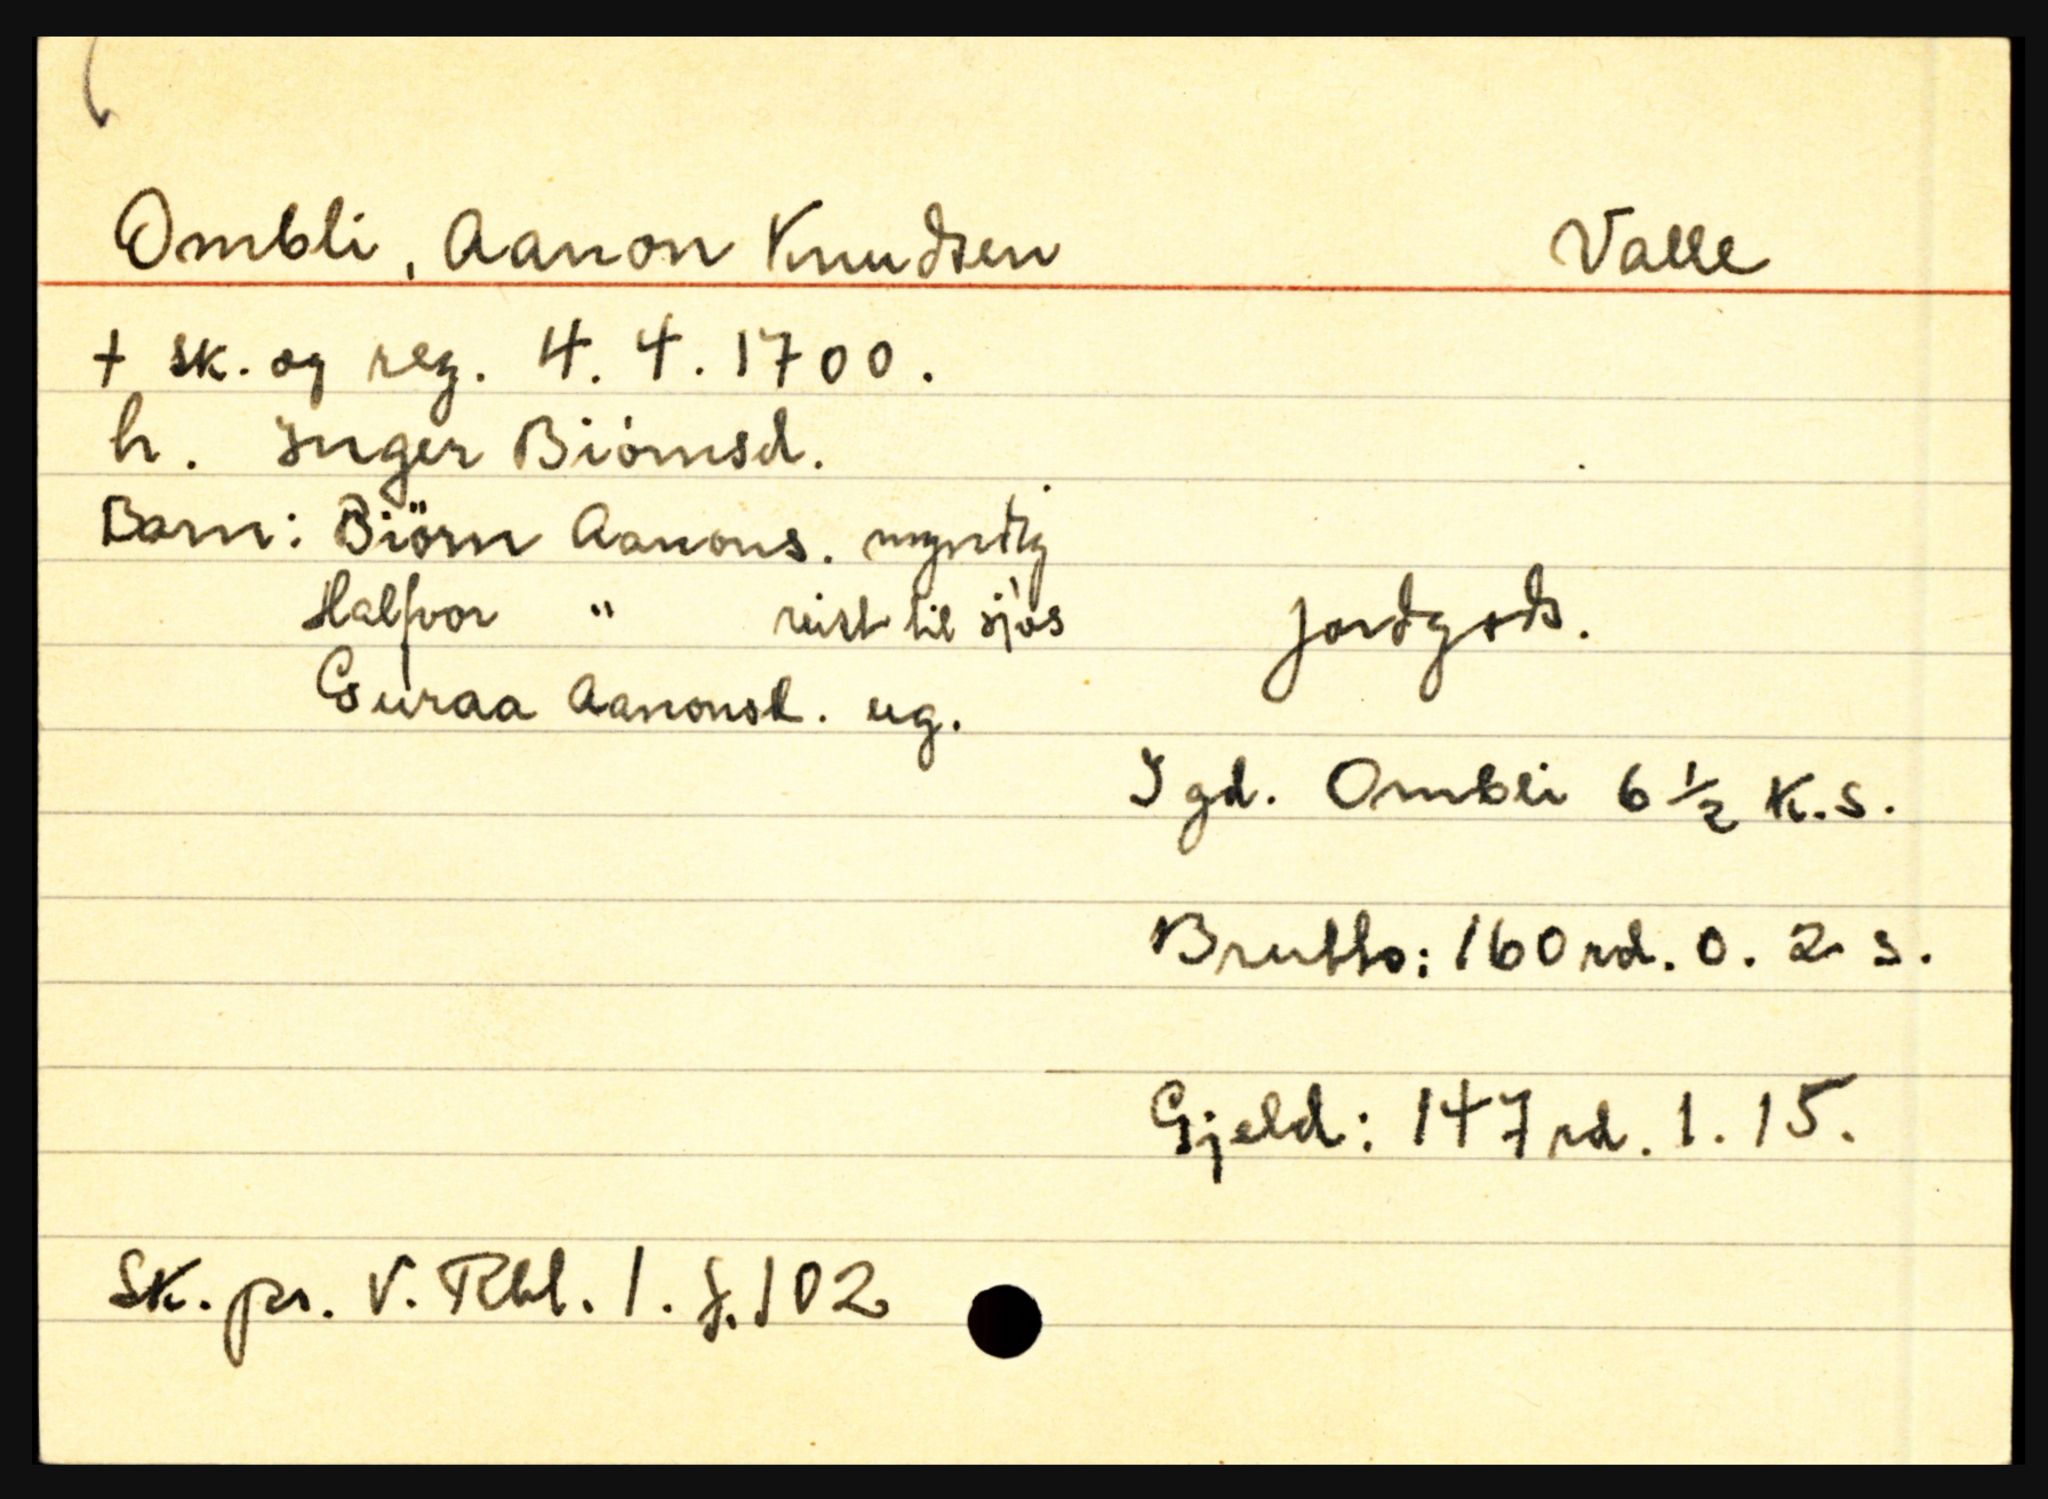 Ombli, Aanon Knudsen Valle
+ sk. og reg. 4. 4. 1700.
h. Inger Biórnsd.
Barn: Biörn Aanons. myndig
Halfvor " reist til sjøs
Guraa Aanonsd. ug.
Jordgods.
I gd. Ombli 6 1/2 K.s.
Brutto: 160 rd. 0. 2 s.
Gjeld: 147 rd. 1. 15.
Sk. pr. V. Rbl. 1. f. 102